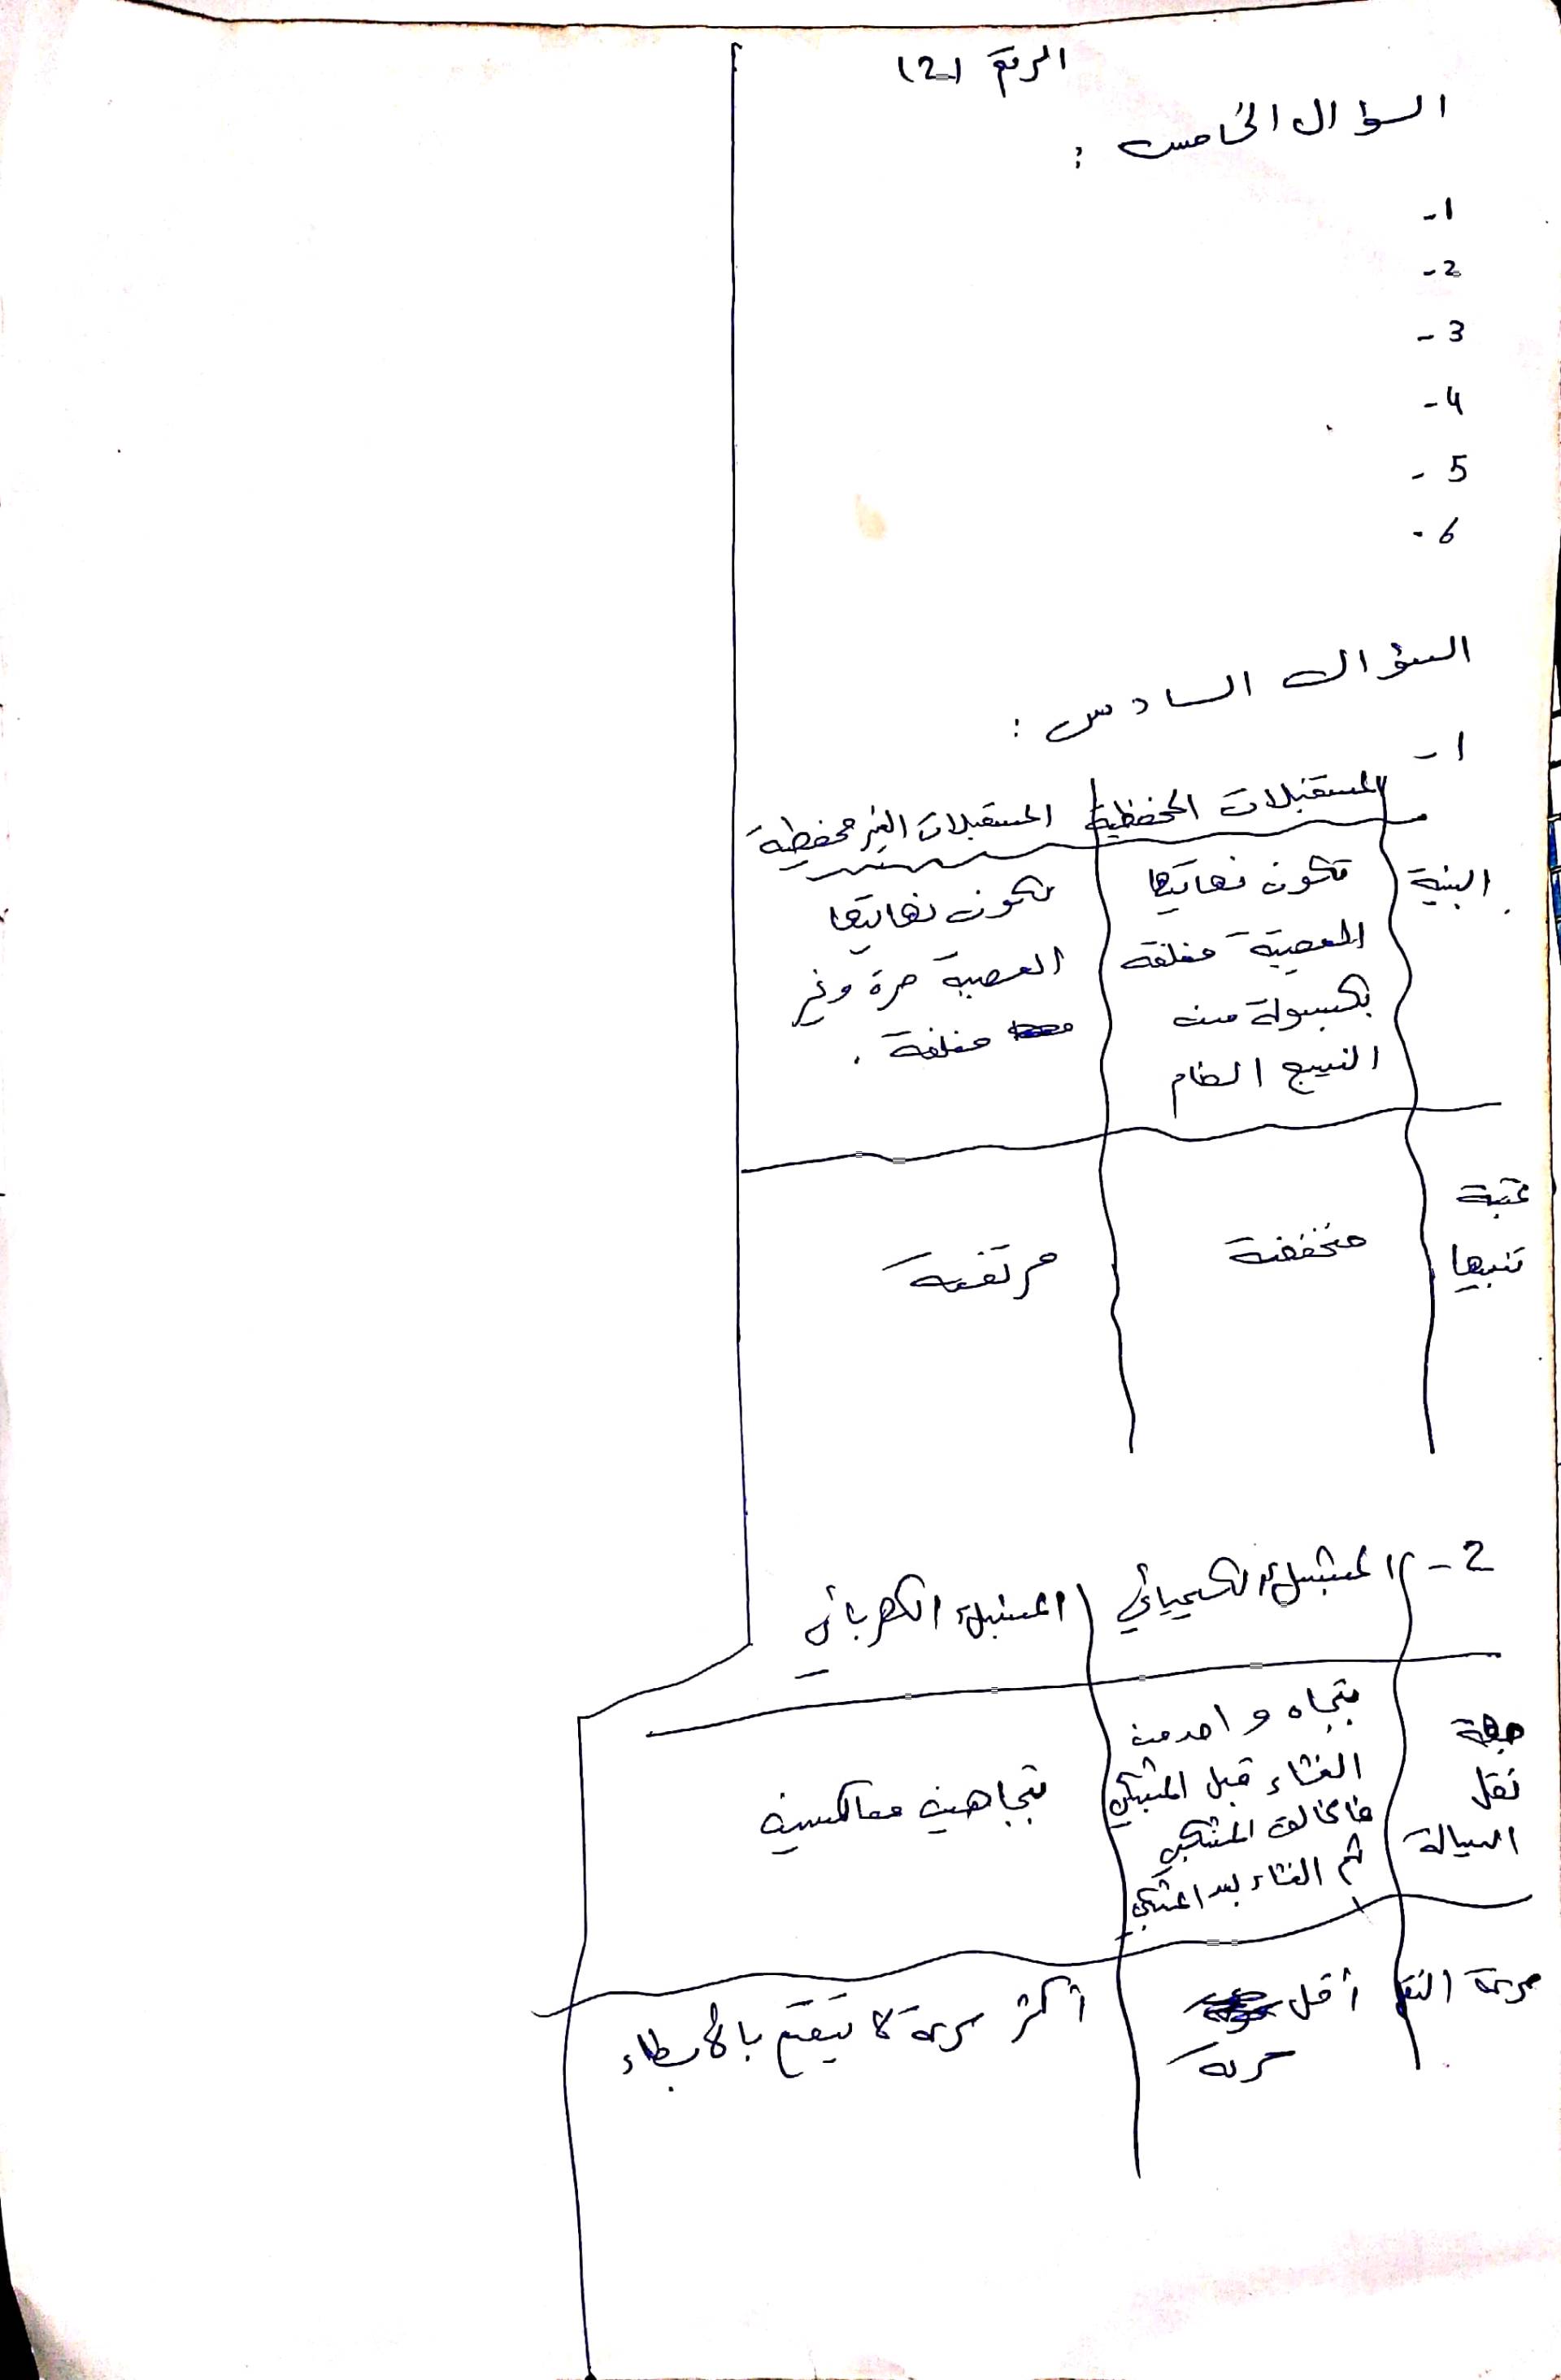 الرقم (2)
السؤال الخامس :
1-
2-
3-
4-
5-
6-
السؤال السادس :
1-
المستقبلات المحفظية
المستقبلات الغير محفظية
البنية
تكون نهايتها
العصبية مغلفة
بكبسولة من
النسيج الضام
تكون نهايتها
العصبية حرة وغير
مغلفة .
عتبة
تنبيها
منخفضة
مرتفعة
2-
المشبك الكيميائي
المشبك الكهربائي
جهة
نقل
السيالة
بتجاه واحد من
الغشاء قبل المشبكي
فالفالق المشبكي
ثم الغشاء بعد المشبكي
بتجاهين معاكسين
سرعة النقل
أقل
سرعة
أكثر سرعة لا يتمتع بالأبطاء